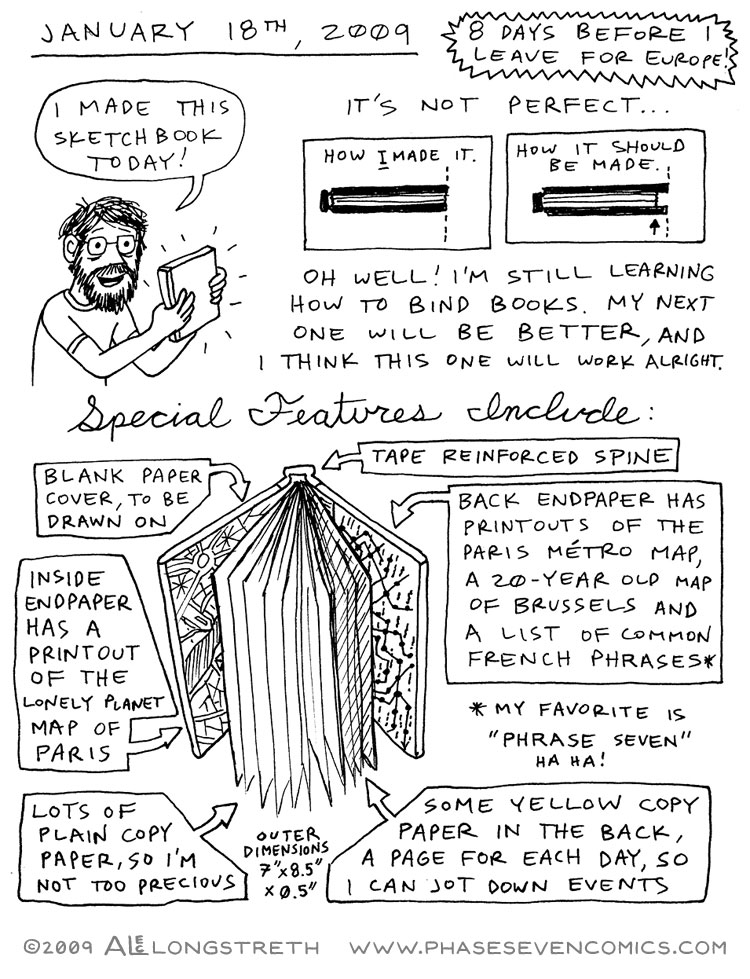 JANUARY 18TH, 2009
8 DAYS BEFORE I
LEAVE FOR EUROPE!
I MADE THIS
SKETCHBOOK
TODAY!
IT'S NOT PERFECT...
HOW I MADE IT.
HOW IT SHOULD
BE MADE.
OH WELL! I'M STILL LEARNING
HOW TO BIND BOOKS. MY NEXT
ONE WILL BE BETTER, AND
I THINK THIS ONE WILL WORK ALRIGHT.
Special Features Include:
TAPE REINFORCED SPINE
BLANK PAPER
COVER, TO BE
DRAWN ON
BACK ENDPAPER HAS
PRINTOUTS OF THE
PARIS MÉTRO MAP,
A 20-YEAR OLD MAP
OF BRUSSELS AND
A LIST OF COMMON
FRENCH PHRASES*
INSIDE
ENDPAPER
HAS A
PRINTOUT
OF THE
LONELY PLANET
MAP OF
PARIS
* MY FAVORITE IS
"PHRASE SEVEN"
HA HA!
LOTS OF
PLAIN COPY
PAPER, SO I'M
NOT TOO PRECIOUS
OUTER
DIMENSIONS
7"x8.5"
x0.5"
SOME YELLOW COPY
PAPER IN THE BACK,
A PAGE FOR EACH DAY, SO
I CAN JOT DOWN EVENTS
©2009 ALEC LONGSTRETH WWW.PHASESEVENCOMICS.COM